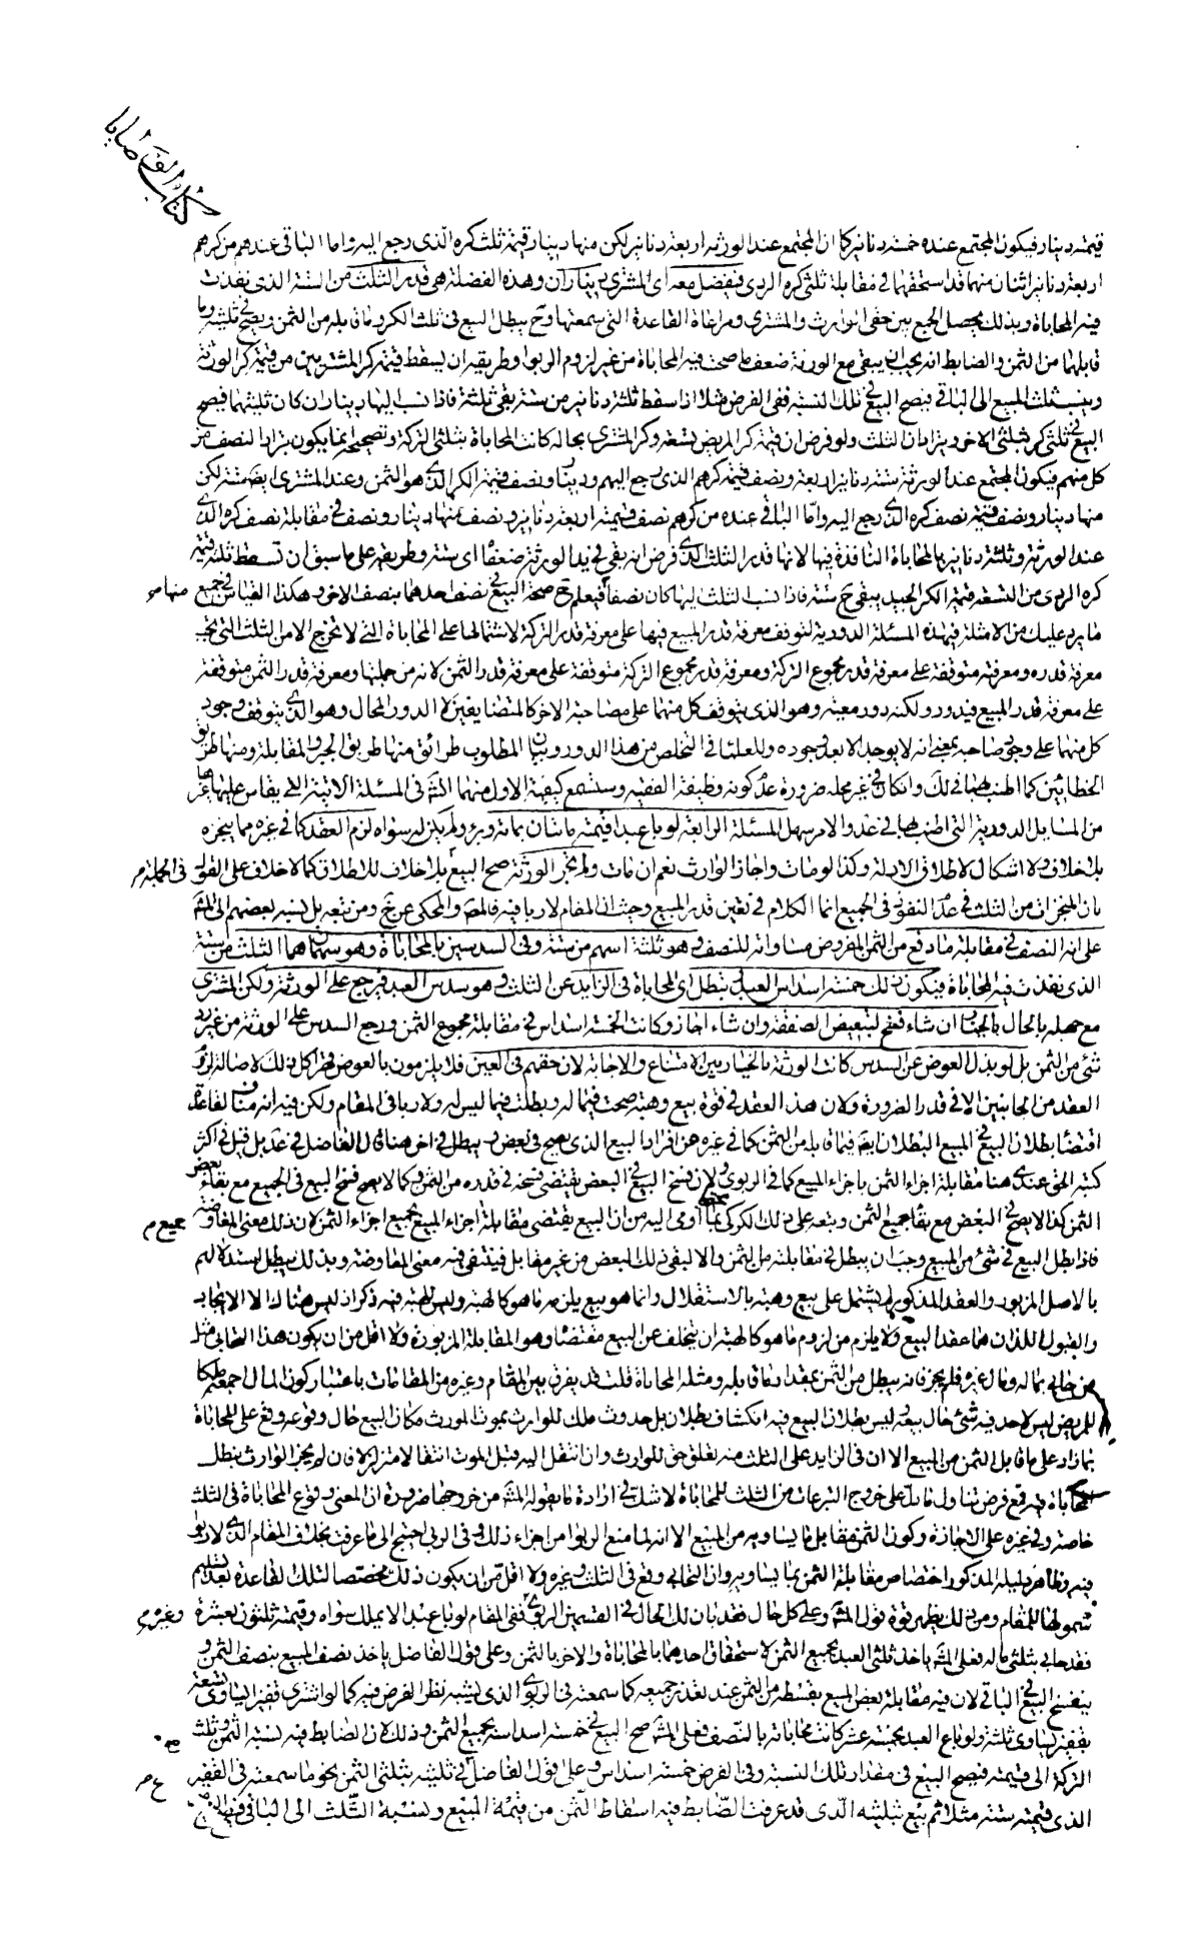 كتاب الوصايا
قيمته دينار فيكون المجتمع عنده خمسة دنانير كما ان المجتمع عند الورثه اربعة دنانير لكن منها دينار قيمة ثلث كره الذى رجع اليه واما الباقى عندهم من كرهم
اربعة دنانير اثنان منهما قد استحقهما فى مقابلة ثلثى كره الردى فيفضل معه اى المشترى ديناران وهذه الفضلة هى قدر الثلث من الستة الذى نفذت
فيه المحاباة وبذلك يحصل الجمع بين حقى الوارث والمشترى ومراعاة القاعدة التى سمعتها وح يبطل البيع فى ثلث الكر وما قابله من الثمن ويصح فى ثلثيه وما
قابلهما من الثمن والضابط انه يجب ان يبقى مع الورثة ضعف ما صحت فيه المحاباة من غير لزوم الربوا وطريقه ان يسقط قيمة كر المشترى من قيمة كر الورثة
وينسب ثلث المبيع الى الباقى فيصح البيع فى تلك النسبة ففى الفرض مثلا اذا سقط ثلثة دنانير من ستة بقى ثلثة فاذا نسب اليها ديناران كان ثلثيها فيصح
البيع فى ثلثى كر بثلثى الاخر ويزاد ان الثلث ولو فرض ان قيمة كر المريض تسعة وكر المشترى بحاله كانت المحاباة بثلثى التركة وتصحيحه انما يكون برد النصف من
كل منهم فيكون المجتمع عند الورثة ستة دنانير اربعة ونصف قيمة كرهم الذى رجع اليهم ودينار ونصف قيمة الكر الذى هو الثمن وعند المشترى ايضا ستة لكن
منها دينار ونصف قيمة نصف كره الذى رجع اليه واما الباقى عنده من كرهم نصف قيمته اربعة دنانير ونصف منها دينار ونصف فى مقابلة نصف كره الذى
عند الورثة وثلثة دنانير بالمحاباة النافذة فيها لانها قدر الثلث الذى فرض انه بقى فى يد الورثة ضعفها اى ستة وطريقه على ما سبق ان تسقط ثلثة قيمة
كره الردى من التسعة قيمة الكر الجيد يبقى ح ستة فاذا نسب الثلث اليها كان نصفا فيعلم ح صحة البيع فى نصف احدهما بنصف الاخر وهكذا القياس فى جميع
ما يرد عليك من الامثلة فهذه المسئلة الدورية لتوقف معرفة قدر المبيع فيها على معرفة قدر التركة لاشتمالها على المحاباة التى لا تخرج الا من الثلث التى تجب
معرفة قدره ومعرفته متوقفة على معرفة قدر مجموع التركة ومعرفة قدر مجموع التركة متوقفة على معرفة قدر الثمن لانه من جملتها ومعرفة قدر الثمن متوقفة
على معرفة قدر المبيع فيدور ولكنه دور معية وهو الذى يتوقف كل منهما على مصاحبة الاخر كالمتضايفين لا الدور المحال وهو الذى يتوقف وجود
كل منهما على وجود صاحبه بمعنى انه لا يوجد الا بعد وجوده وللعلماء فى التخلص من هذا الدور وبيان المطلوب طرائق منها طريق الجبر والمقابلة ومنها طريق
الخطائين كما اطنب بهما فى لك وان كان فى غير محله ضرورة عدم كونه وظيفة الفقيه وستسمع كيفية الاول منهما انشاء الله فى المسئلة الاتية التى يقاس عليها غيرها
من المسايل الدورية التى اطنب بها فى عد والامر سهل المسئلة الرابعة لو باع عبدا قيمته مائتان بمائة وبرء ولم يكن له سواه لزم العقد كما فى غيره مما ينجزه
بلا خلاف ولا اشكال لاطلاق الادلة وكذا لو مات واجاز الوارث نعم ان مات ولم يجز الورثة صح البيع بلا خلاف للاطلاق كما لا خلاف على القول فى الجملة
بان المنجزات من الثلث فى عدم النفوذ فى الجميع انما الكلام فى تعين قدر المبيع وحيث ان المقام لا ربا فيه فالمص والمحكى عن ح ومن تبعه بل نسبه بعضهم الى المش
على انه النصف فى مقابلة ما دفع من الثمن المفروض مساواته للنصف وهو ثلثة اسهم من ستة وفى السدسين بالمحاباة وهو سهمان هما الثلث من ستة
الذى نفذت فيه المحاباة فيكون ذلك خمسة اسداس العبد وتبطل اى المحاباة فى الزايد عن الثلث وهو سدس العبد فيرجع على الورثة ولكن المشترى
مع جهله بالحال بالخيار ان شاء فسخ لتبعيض الصفقة وان شاء اجاز وكانت الخمسة اسداس فى مقابلة مجموع الثمن ورجع السدس على الورثة من غير رد
شئ من الثمن بل لو بذل العوض عن السدس كانت الورثة بالخيار بين الامتناع والاجابة لان حقهم فى العين فلا يلزمون بالعوض
العقد من الجانبين الا فى قدر الضرورة ولان هذا العقد فى قوة بيع وهبة صحت فيما له وبطلت فيما ليس له ولا ربا فى المقام ولكن فيه انه مناف لقاعدة
اقتضاء بطلان البيع فى المبيع البطلان ايضا فيما قابله من الثمن كما فى غيره من افراد البيع الذى يصح فى بعض ويبطل فى اخر هنا قال الفاضل فى عد بل قيل فى اكثر
كتبه الحق عندى هنا مقابلة اجزاء الثمن باجزاء المبيع كما فى الربوى ولان فسخ البيع فى البعض يقتضى فسخه فى قدره من الثمن وكما لا يصح فسخ البيع فى الجميع مع بقاء بعض
الثمن كذا لا يصح فى البعض مع بقاء جميع الثمن وتبعه على ذلك الكركى بما اومى اليه من ان البيع يقتضى مقابلة اجزاء المبيع بجميع اجزاء الثمن لان ذلك معنى المعاوضة
فاذا بطل البيع فى شئ من المبيع وجب ان يبطل فى مقابلته من الثمن والا لبقى ذلك البعض من غير مقابل فينتفى فيه معنى المعاوضة وبذلك يبطل
بالاصل المزبور والعقد المذكور لم يشتمل على بيع وهبة بالاستقلال وانما هو بيع يلزمه ما هو كالهبة وليس للهبة فيه ذكر اذ ليس هناك الا الايجاب
والقبول اللذان هما عقد البيع ولا يلزم من لزوم ما هو كالهبة ان يتخلف عن البيع مقتضاه وهو المقابلة المزبورة ولا اقل من ان يكون هذا المحابى مثل
من حابى بماله ومال غيره فلم يجز فانه يبطل من الثمن بمقدار ما قابله ومثله المحاباة قلت قد يفرق بين المقام وغيره من المقامات باعتبار كون المال اجمعه ملكا
للمريض ليس لاحد فيه شئ حال بيعه ليس بطلان البيع فيه انكشاف بطلان بل حدوث ملك للوارث بموت المورث مكان البيع حال وقوعه وقع على المحاباة
بما زاد على ما قابل الثمن من المبيع الا ان فى الزايد على الثلث منه تعلق حق للوارث وان انتقل اليه قبل الموت انتقالا متزلزلا فان لم يجز الوارث بطلت
المحاباة فيه فمع فرض تناول ما دل على خروج التبرعات من الثلث للمحاباة لا شك فى ارادة ما يقوله المش من خروجها ضرورة ان المعنى وقوع المحاباة فى الثلث
خاصة وفى غيره على الاجازة وكون الثمن مقابل ما يساويه من المبيع الا انه لما منع الربوا من اجزاء ذلك فى الربوى احتيج الى ما عرفت بخلاف المقام الذى لا ربوا
فيه وظاهر دليله المذكور اختصاص مقابلة الثمن بما يساويه وان التحابى وقع فى الثلث وغيره ولا اقل من ان يكون ذلك مخصصا لتلك القاعدة بعد تسليم
شمولها للمقام ومن ذلك يظهر قوة قول المش وعلى كل حال فقد بان لك الحال فى القسمين الربوى ففى المقام لو باع عبدا لا يملك سواه وقيمته ثلثون بعشرة وغيره
فقد حابى بثلثى ماله فعلى المش ياخذ ثلثى العبد بجميع الثمن لاستحقاق احدهما بالمحاباة والاخر بالثمن وعلى قول الفاضل ياخذ نصف المبيع بنصف الثمن و
ينفسخ البيع فى الباقى لان فيه مقابلة بعض المبيع بقسطه من الثمن عند تعذر جميعه كما سمعته فى الربوى الذى يشبه نظر الفرض فيه كما لو اشترى قفيزا يساوى تسعة
بقفيز يساوى ثلثة ولو باع العبد بخمسة عشر كانت محاباته بالنصف فعلى المش صح البيع فى خمسة اسداسه بجميع الثمن وذلك لان الضابط فيه نسبة الثمن وثلث
التركة الى قيمته فيصح البيع فى مقدار تلك النسبة وفى الفرض خمسة اسداس وعلى قول الفاضل فى ثلثيه بثلثى الثمن نحو ما سمعته فى القفيز
الذى قيمته ستة مثلا ثم بيع بثلثيه الذى قد عرفت الضابط فيه اسقاط الثمن من قيمة المبيع ونسبة الثلث الى الباقى